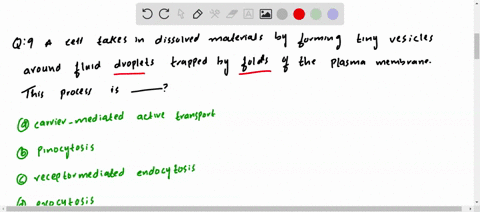 Q:9 A cell takes in dissolved materials by forming tiny vesicles
around fluid droplets trapped by folds of the plasma membrane.
This process is ____?
(a) carrier-mediated active transport
(b) Pinocytosis
(c) receptormediated endocytosis
(d) exocytosis